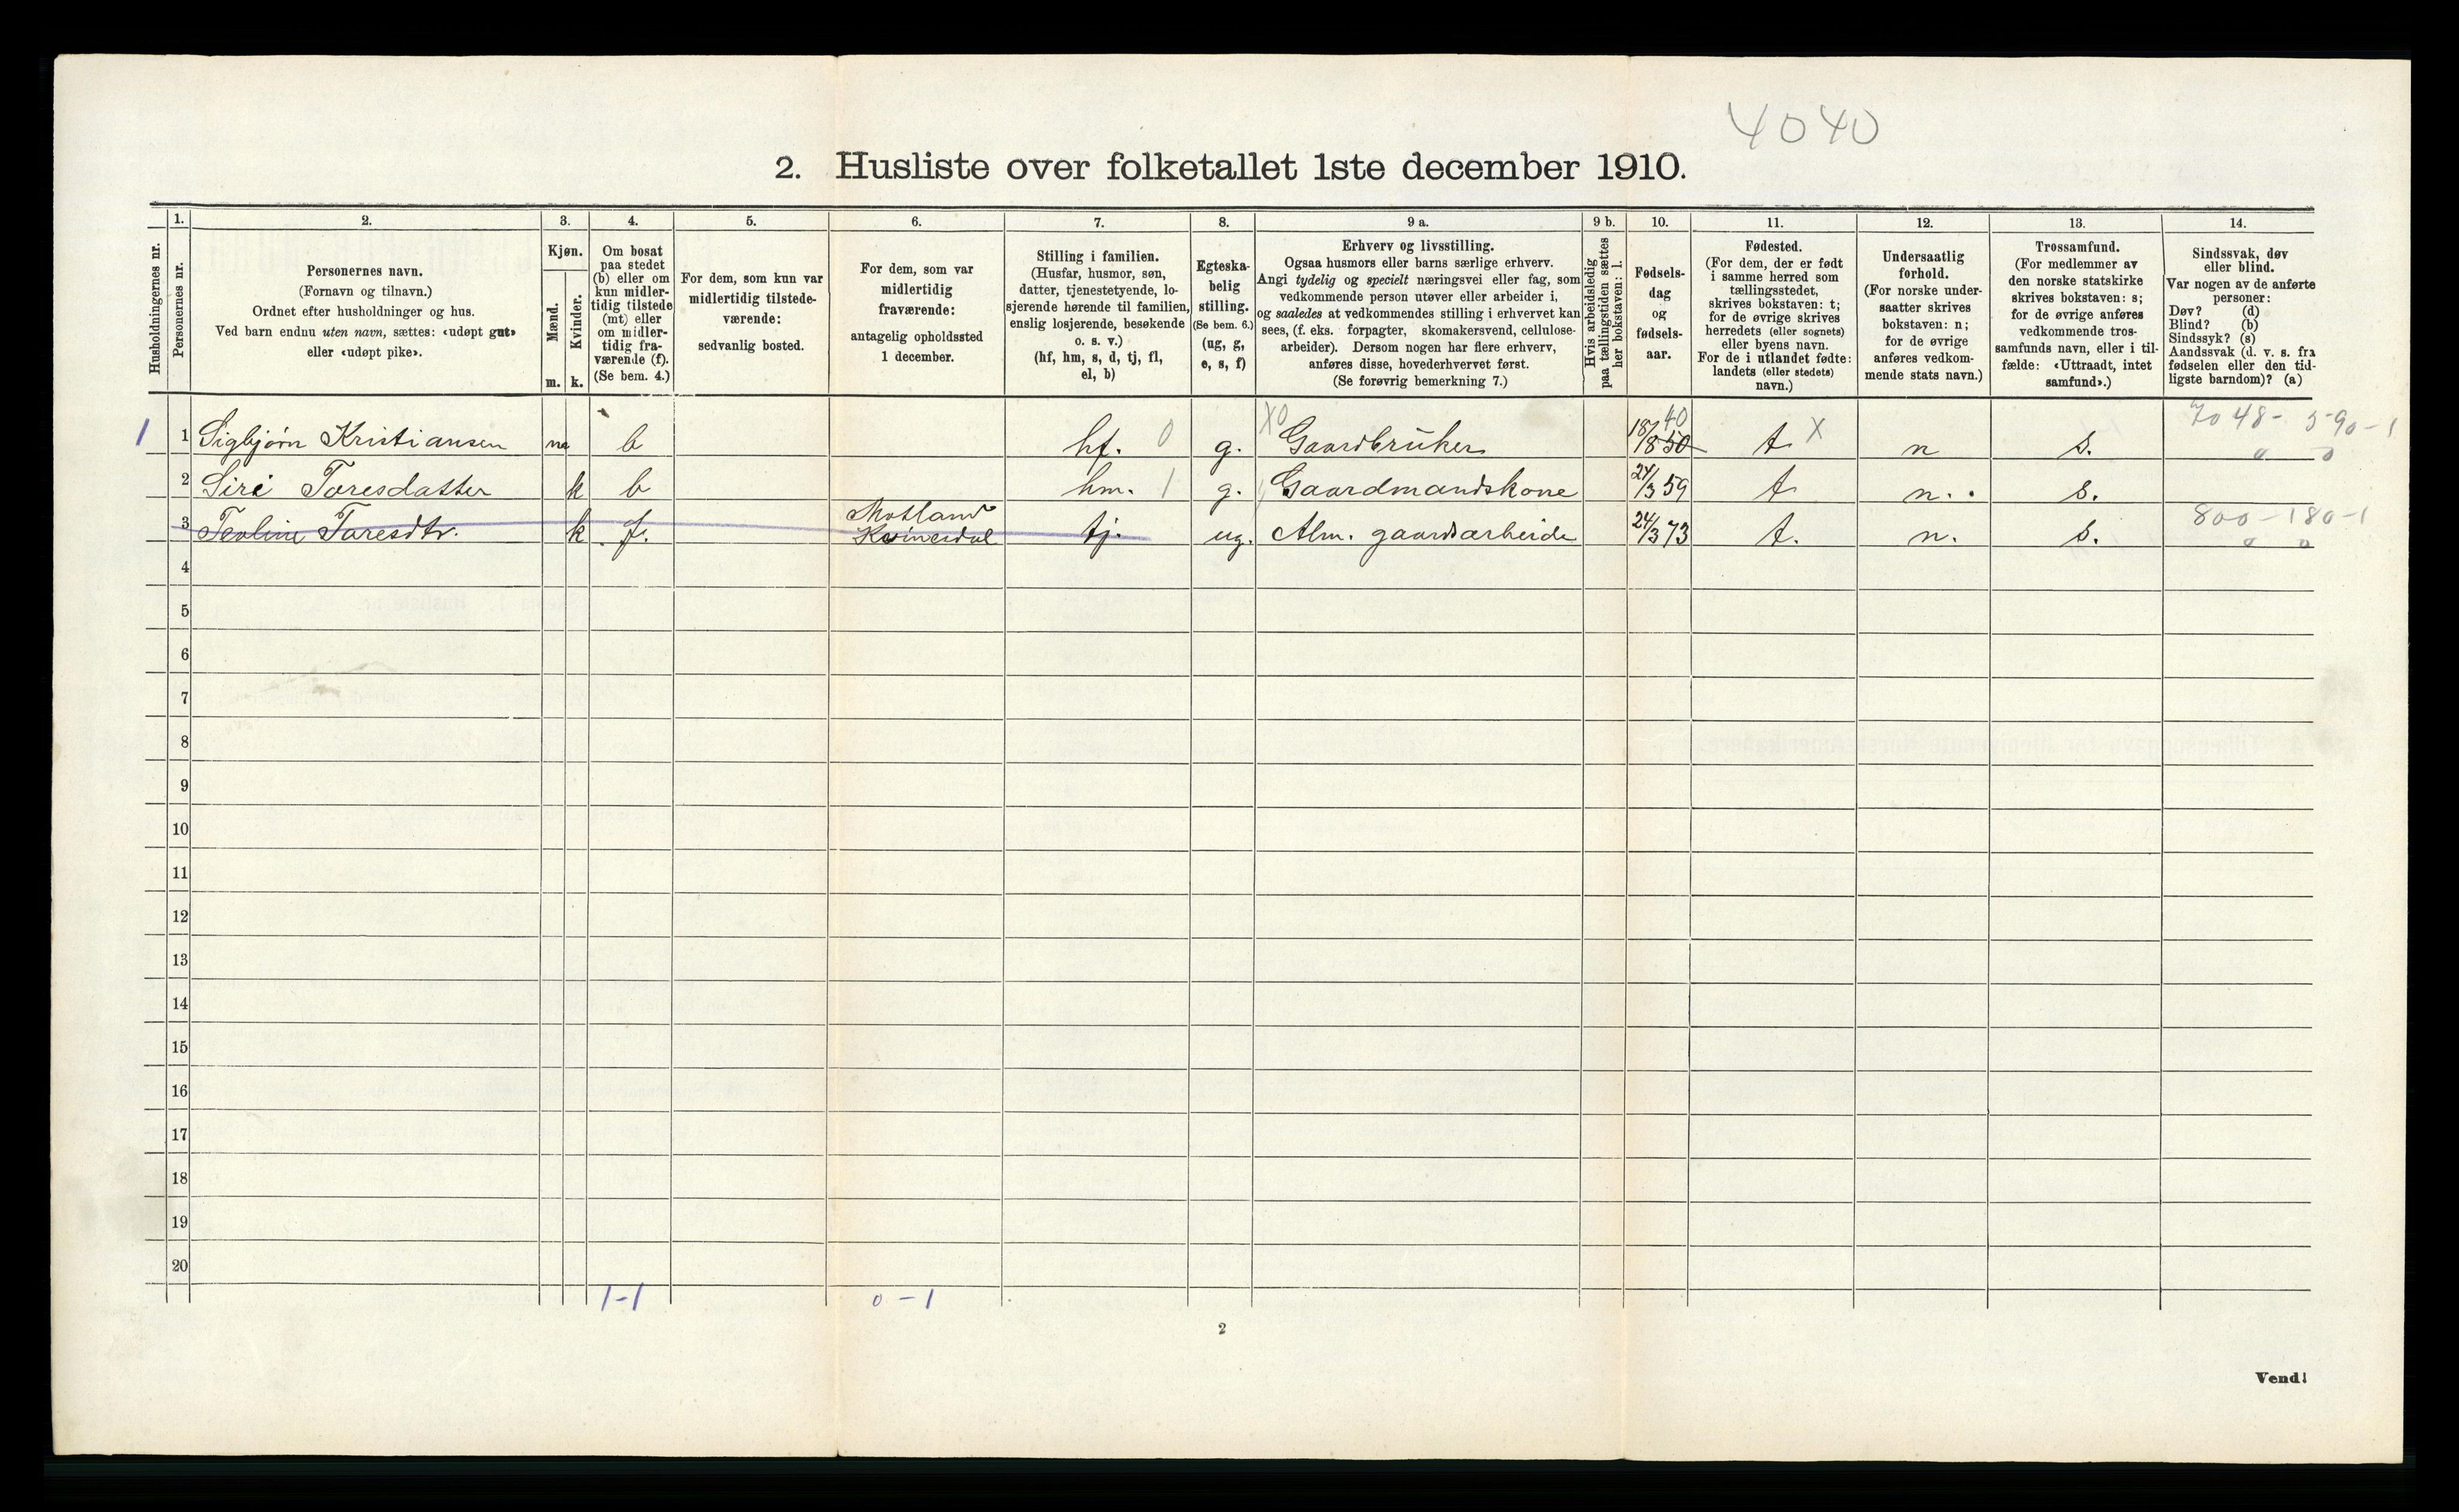 4040
2. Husliste over folketallet 1ste december 1910.
Husholdningernes nr.
1.
Personernes nr.
2.
Personernes navn.
(Fornavn og tilnavn.)
Ordnet efter husholdninger og hus.
Ved barn endnu uten navn, sættes: «udøpt gut»
eller «udøpt pike».
3.
Kjøn.
Mænd.
Kvinder.
m. k.
4.
Om bosat
paa stedet
(b) eller om
kun midler-
tidig tilstede
(mt) eller
om midler-
tidig fra-
værende (f).
(Se bem. 4.)
5.
For dem, som kun var
midlertidig tilstede-
værende:
sedvanlig bosted.
6.
For dem, som var
midlertidig
fraværende:
antagelig opholdssted
1 december.
7.
Stilling i familien.
(Husfar, husmor, søn,
datter, tjenestetyende, lo-
sjerende hørende til familien,
enslig losjerende, besøkende
o. s. v.)
(hf, hm, s, d, tj, fl,
el, b)
8.
Egteska-
belig
stilling.
(Se bem. 6.)
(ug, g,
e, s, f)
9 a.
Erhverv og livsstilling.
Ogsaa husmors eller barns særlige erhverv.
Angi tydelig og specielt næringsvei eller fag, som
vedkommende person utøver eller arbeider i,
og saaledes at vedkommendes stilling i erhvervet kan
sees, (f. eks. forpagter, skomakersvend, cellulose-
arbeider). Dersom nogen har flere erhverv,
anføres disse, hovederhvervet først.
(Se forøvrig bemerkning 7.)
9 b.
Hvis arbeidsledig
paa tællingstiden sættes
her bokstaven: l.
10.
Fødsels-
dag
og
fødsels-
aar.
11.
Fødested.
(For dem, der er født
i samme herred som
tællingsstedet,
skrives bokstaven: t;
for de øvrige skrives
herredets (eller sognets)
eller byens navn.
For de i utlandet fødte:
landets (eller stedets)
navn.)
12.
Undersaatlig
forhold.
(For norske under-
saatter skrives
bokstaven: n;
for de øvrige
anføres vedkom-
mende stats navn.)
13.
Trossamfund.
(For medlemmer av
den norske statskirke
skrives bokstaven: s;
for de øvrige anføres
vedkommende tros-
samfunds navn, eller i til-
fælde: «Uttraadt, intet
samfund».)
14.
Sindssvak, døv
eller blind.
Var nogen av de anførte
personer:
Døv? (d)
Blind? (b)
Sindssyk? (s)
Aandssvak (d. v. s. fra
fødselen eller den tid-
ligste barndom)? (a)
1 1 Sigbjørn Kristiansen m b hf. 0 g. X0 Gaardbruker 18/8 50 40 t X n s. 7048- 590-1
0 0
2 Siri Toresdatter k b hm. 1 g. Gaardmandskone 24/3 59 t n. s.
3 Toresdtr. k f. Kvinesdal tj. ug. Alm. gaardsarbeide 24/3 73 t. n. s. 800-180-1
0 0
4
5
6
7
8
9
10
11
12
13
14
15
16
17
18
19
20
1-1 0-1
2
Vend!